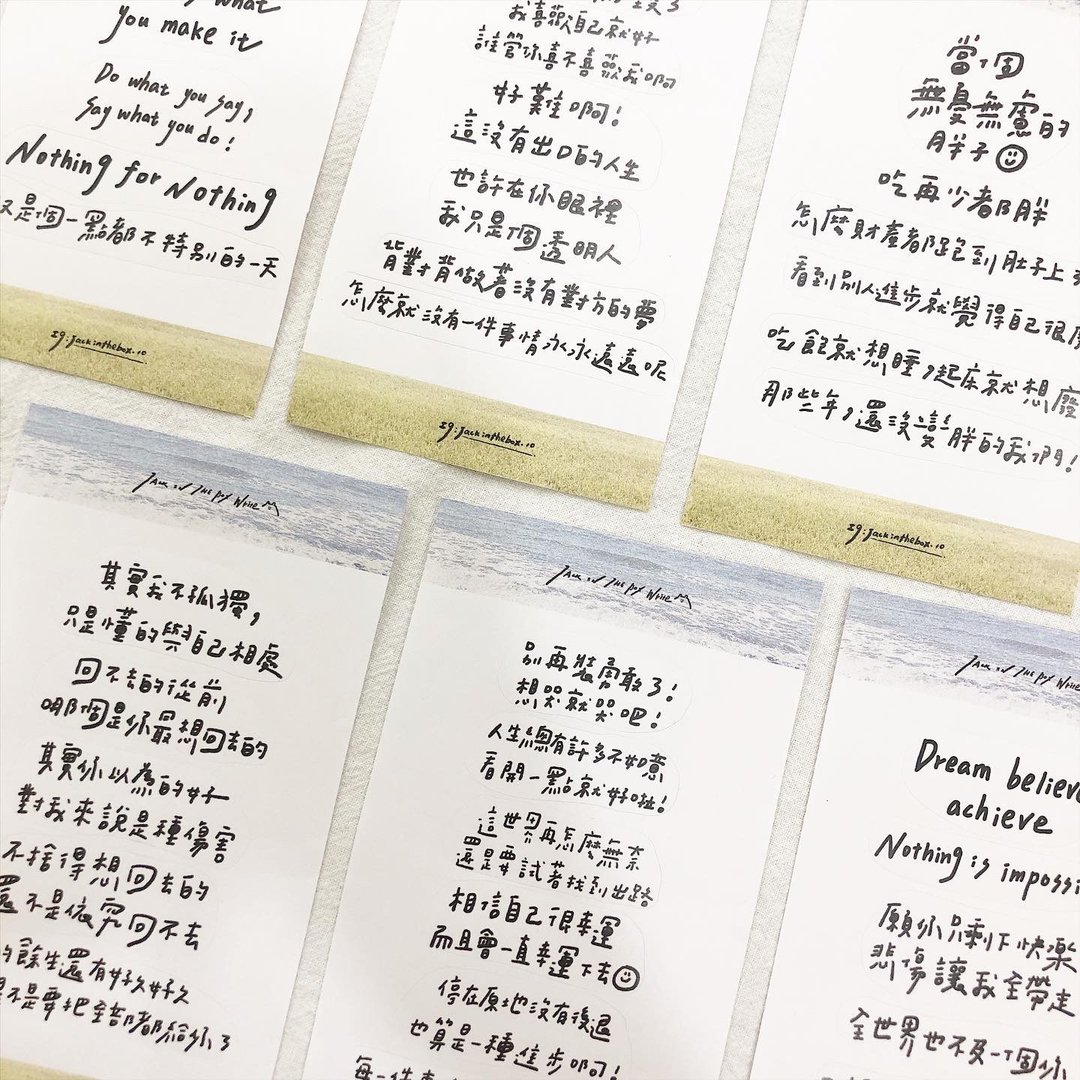 what
you make it
Do what you say,
Say what you do!
Nothing for Nothing
又是個一點都不特別的一天
Ig:jackinthebox.10
我喜歡自己就好
誰管你喜不喜歡我啊
好難啊!
這沒有出口的人生
也許在你眼裡
我只是個透明人
背對背做著沒有對方的夢
怎麼就沒有一件事情永永遠遠呢
Ig:jackinthebox.10
當個
無憂無慮的
胖子
吃再少都胖
怎麼財產都跑到肚子上
看到別人進步就覺得自己很
吃飽就想睡,起床就想廢
那些年,還沒變胖的我們!
Ig:jackinthebox.10
其實我不孤獨,
只是懂的與自己相處
回不去的從前
哪個是你最想回去的
其實你以為的好
對我來說是種傷害
不捨得想回去的
還不是依究回不去
的餘生還有好久好久
是不是要把全部都給你了
別再裝勇敢了!
想哭就哭吧!
人生總有許多不如意
看開一點就好啦!
這世界再怎麼無奈
還是要試著找到出路
相信自己很幸運
而且會一直幸運下去
停在原地沒有後退
也算是一種進步啊!
每一件
Dream believe
achieve
Nothing is impossi
願你只剩下快樂
悲傷讓我全帶走
全世界也不及一個你